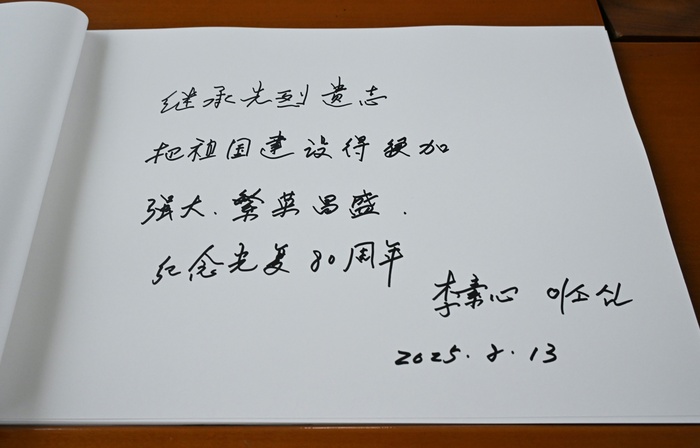 继承先烈遗志
把祖国建设得更加
强大、繁荣昌盛．
纪念光复80周年
李素心 이소심
2025.8.13